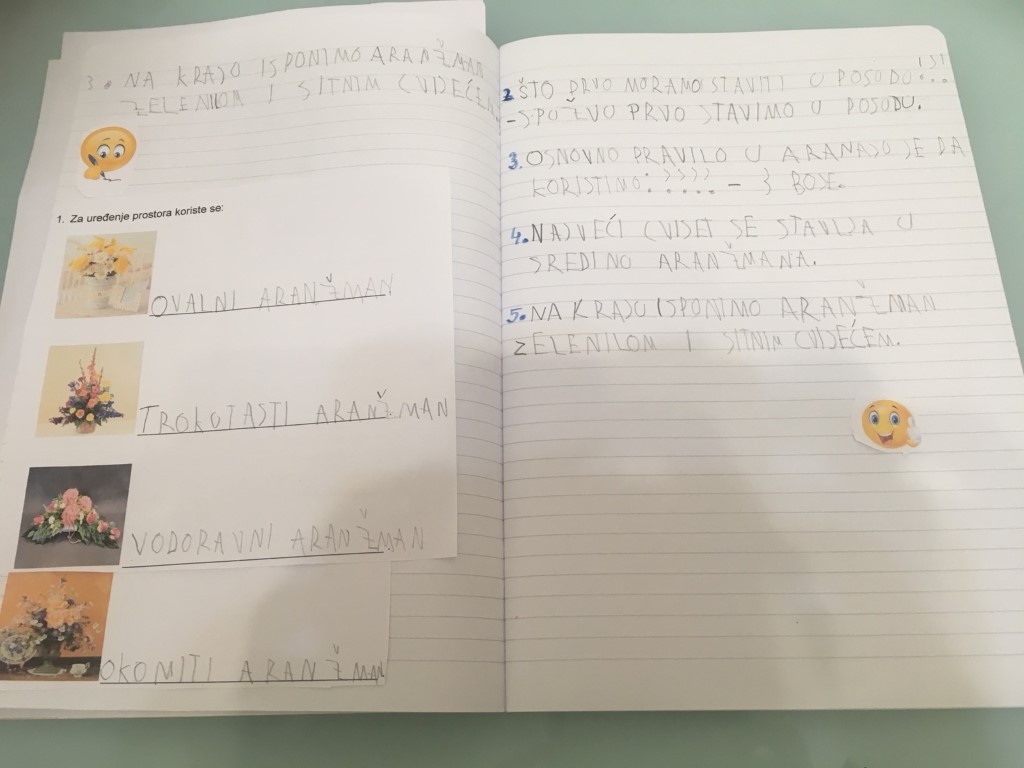 3. NA KRAJU ISPONIMO ARANŽMAN
ZELENILOM I SITNIM CVIJEĆEM
1. Za uređenje prostora koriste se:
OVALNI ARANŽMAN
TROKUTASTI ARANŽMAN
VODORAVNI ARANŽMAN
OKOMITI ARANŽMAN
2. ŠTO PRVO MORAMO STAVITI U POSUDU
- SPUŽVU PRVO STAVIMO U POSUDU.
3. OSNOVNO PRAVILO U JE DA
KORISTIMO: - 3 BOJE.
4. NAJVEĆI CVIJET SE STAVLJA U
SREDINU ARANŽMANA.
5. NA KRAJU ISPONIMO ARANŽMAN
ZELENILOM I SITNIM CVIJEĆEM.